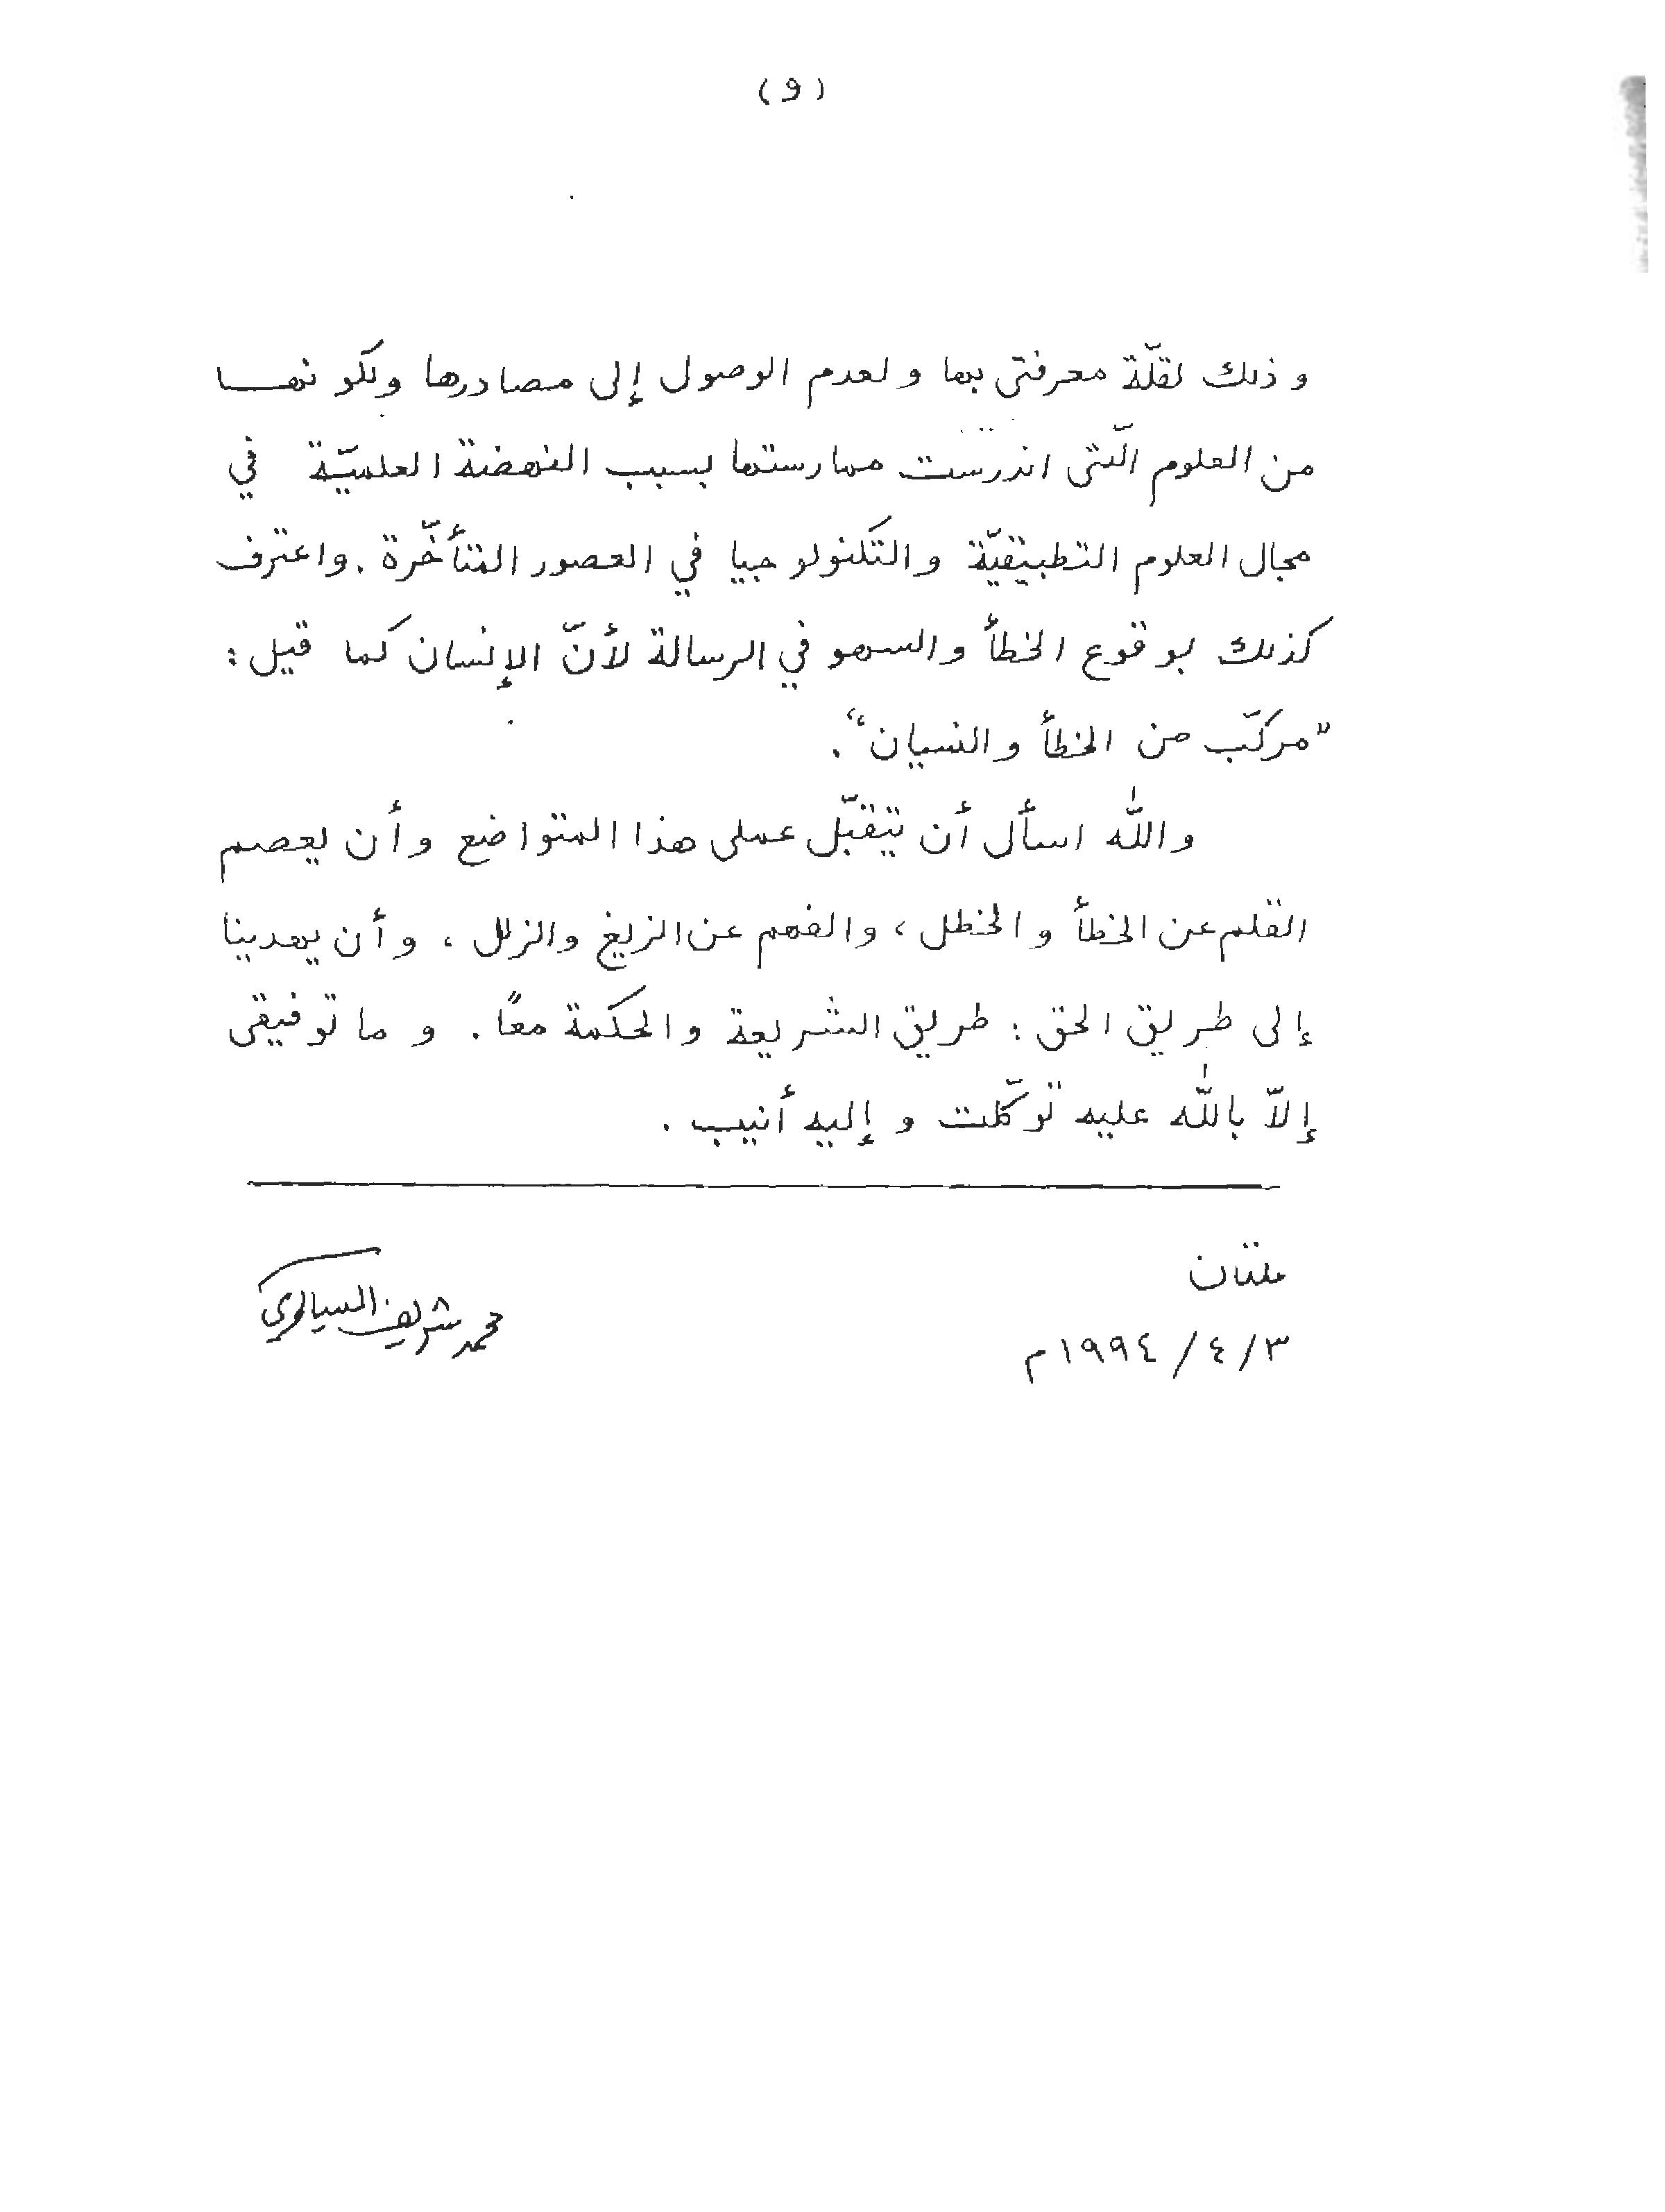 (و)
وذلك لقلّة معرفتى بها ولعدم الوصول إلى مصادرها ولكونها
من العلوم الّتى اندرست ممارستها بسبب النهضة العلميّة في
مجال العلوم التطبيقيّة والتّكنولوجيا في العصور المتأخّرة. واعترف
كذلك بوقوع الخطأ والسهو في الرسالة لأنّ الإنسان كما قيل:
"مركّب من الخطأ والنسيان".
والله اسأل أن يتقبّل عملى هذا المتواضع وأن يعصم
القلم عن الخطأ والخطل، والفهم عن الزيغ والزلل، وأن يهدينا
إلى طريق الحق: طريق الشريعة والحكمة معًا. وما توفيقى
إلاّ بالله عليه توكّلت وإليه أنيب.
ملتان
محمد شريف السيالوي
٣/٤/١٩٩٤م